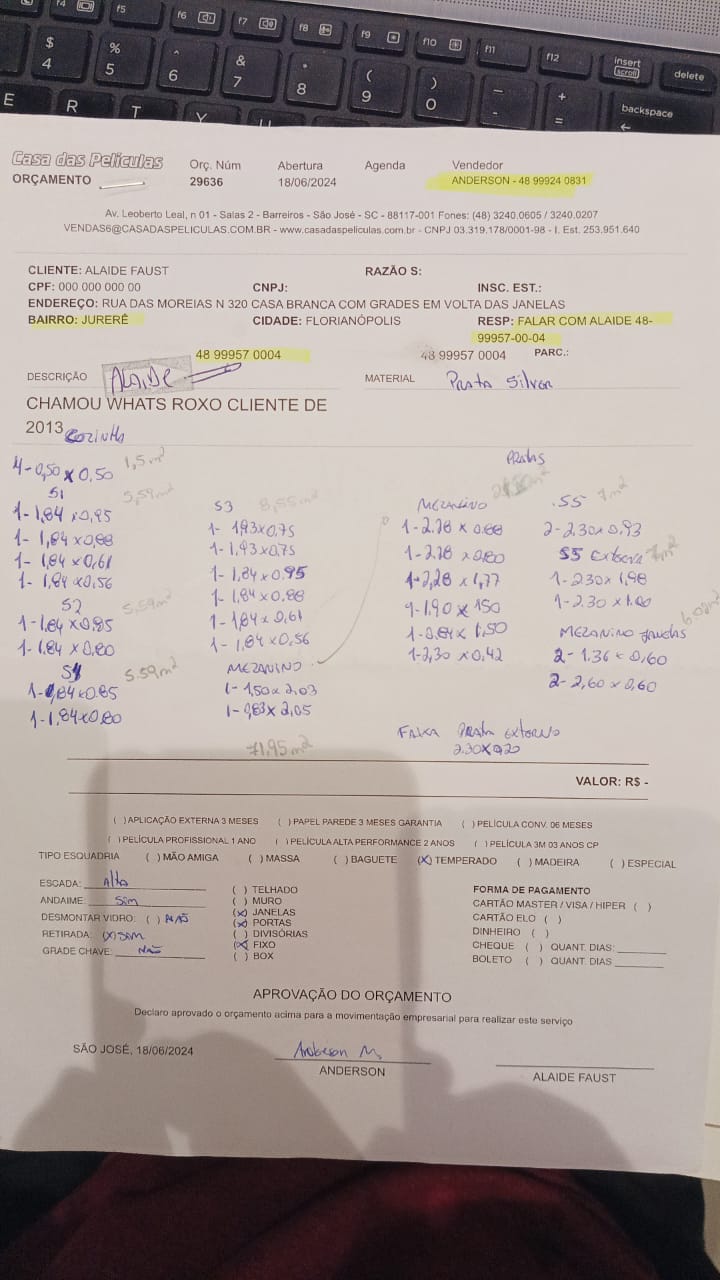 f4 f5 f6 f7 f8 f9 f10 f11 f12 insert scroll delete
$ 4 % 5 ^ 6 & 7 * 8 ( 9 ) 0 _ - + = backspace
E R T Y U
Casa das Películas
ORÇAMENTO
Orç. Núm
29636
Abertura
18/06/2024
Agenda
Vendedor
ANDERSON - 48 99924 0831
Av. Leoberto Leal, n 01 - Salas 2 - Barreiros - São José - SC - 88117-001 Fones: (48) 3240.0605 / 3240.0207
VENDAS6@CASADASPELICULAS.COM.BR - www.casadaspeliculas.com.br - CNPJ 03.319.178/0001-98 - I. Est. 253.951.640
CLIENTE: ALAIDE FAUST RAZÃO S:
CPF: 000 000 000 00 CNPJ: INSC. EST.:
ENDEREÇO: RUA DAS MOREIAS N 320 CASA BRANCA COM GRADES EM VOLTA DAS JANELAS
BAIRRO: JURERÊ CIDADE: FLORIANÓPOLIS RESP: FALAR COM ALAIDE 48-
99957-00-04
48 99957 0004 48 99957 0004 PARC.:
DESCRIÇÃO ALAIDE MATERIAL Prata Silver
CHAMOU WHATS ROXO CLIENTE DE
2013 Cozinha
4-0,50 x 0,50 1,5m²
S1 5,59m²
1-1,84 x0,95
1-1,84 x0,88
1-1,84 x0,61
1-1,84 x0,56
S2 5,59m²
1-1,84 x0,85
1-1,84 x0,80
S4 5.59m²
1-1,84x0,85
1-1,84x0,80
S3 8,55m²
1-1,93x0,75
1-1,93x0,75
1-1,84x0,95
1-1,84x0,88
1-1,84x0,61
1-1,84x0,56
MEZANINO
1-1,50x2,03
1-0,83x2,05
71,95m²
Pratas
MEZANINO
1-2.28 x 0.68
1-2.28 x 0,80
1-2,28 x 1,77
1-1.90 x 150
1-0,84x 1,50
1-2,30 x 0,42
S5 7m²
2-2.30x 0,93
S5 Externa 7m²
1-2.30x 1,98
1-2.30 x 1.00
6,00m²
MEZANINO Janelas
2-1.36 x 0,60
2-2,60 x 0,60
FAIXA Prata Externo
2.30x0,20
VALOR: R$ -
( ) APLICAÇÃO EXTERNA 3 MESES ( ) PAPEL PAREDE 3 MESES GARANTIA ( ) PELÍCULA CONV. 06 MESES
( ) PELÍCULA PROFISSIONAL 1 ANO ( ) PELÍCULA ALTA PERFORMANCE 2 ANOS ( ) PELÍCULA 3M 03 ANOS CP
TIPO ESQUADRIA ( ) MÃO AMIGA ( ) MASSA ( ) BAGUETE (X) TEMPERADO ( ) MADEIRA ( ) ESPECIAL
ESCADA: Alta
ANDAIME: Sim
DESMONTAR VIDRO: ( ) NÃO
RETIRADA: (x) Sim
GRADE CHAVE: NÃO
( ) TELHADO
( ) MURO
(x) JANELAS
(x) PORTAS
( ) DIVISÓRIAS
(x) FIXO
( ) BOX
FORMA DE PAGAMENTO
CARTÃO MASTER / VISA / HIPER ( )
CARTÃO ELO ( )
DINHEIRO ( )
CHEQUE ( ) QUANT. DIAS:
BOLETO ( ) QUANT. DIAS
APROVAÇÃO DO ORÇAMENTO
Declaro aprovado o orçamento acima para a movimentação empresarial para realizar este serviço
SÃO JOSÉ, 18/06/2024
Anderson M.
ANDERSON
ALAIDE FAUST